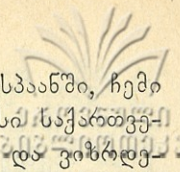 სპაანში, ჩემი
სი საქართვე-
და ვიზრდე-